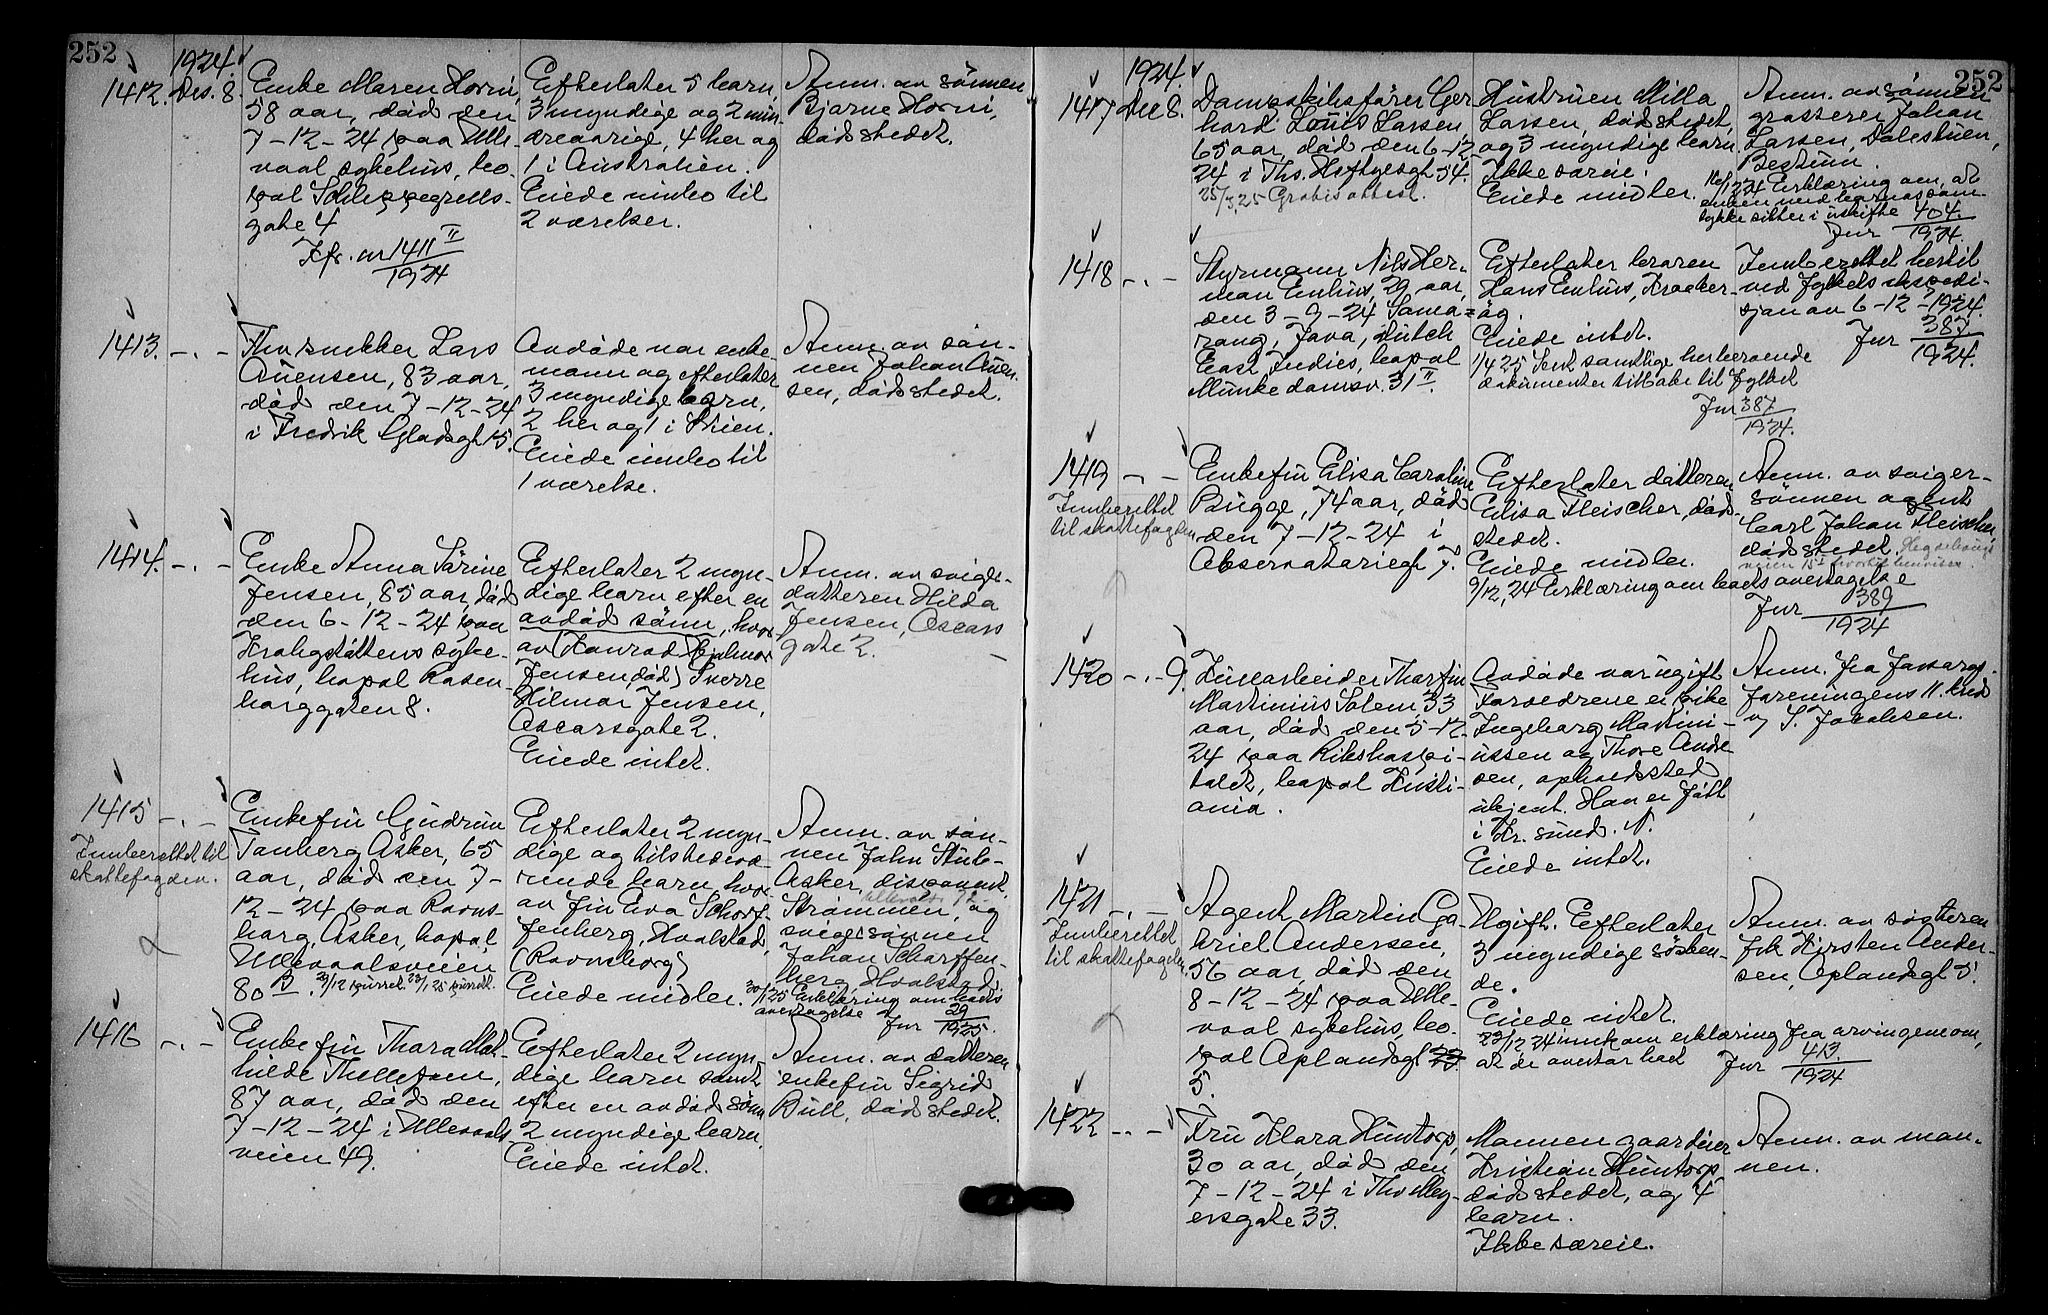 252
1924.
1412. Des. 8.
Enke Maren Horni,
58 aar, död den
7-12-24 paa Ulle-
vaal sykehus, bo-
pæl Schleppegrells-
gate 4
Jfr. nr 1411 II
1924
Efterlater 5 barn,
3 myndige og 2 min-
dreaarige, 4 her og
1 i Australien.
Eiede innbo til
2 værelser.
Anm. av sönnen
Bjarne Horni,
dödsstedet.
1413. -.-
Thv. snekker Lars
Auensen, 83 aar,
död den 7-12-24
i Fredrik Gladsgt 15.
Avdöde var enke-
mann og efterlater
3 myndige barn,
2 her og 1 i Skien.
Eiede innbo til
1 værelse.
Anm. av sön-
nen Johan Auen-
sen, dödsstedet.
1414. -.-
Enke Anna Sörine
Jensen, 85 aar, död
den 6-12-24 paa
Krohgstöttens syke-
hus, bopæl Rosen-
borggaten 8.
Efterlater 2 myn-
dige barn efter en
avdöd sönn, hvor
av (Konrad Hjalmar
Jensen, död) Sverre
Hilmar Jensen,
Oscarsgate 2.
Eiede intet.
Anm. av sviger-
datteren Hilda
Jensen, Oscars
gate 2.
1415 -.-
Innberettet til
skattefogden.
Enkefru Gudrun
Tanberg Asker, 65
aar, död den 7-
12-24 paa Ravns-
borg, Asker, bopæl
Ullevaalsveien
80 B. 29/12 purret. 23/1 25 purret.
Efterlater 2 myn-
dige og tilstedevæ-
rende barn, hvor
av fru Eva Scharf-
fenberg, Hvalstad
(Ravnsborg)
Eiede midler.
Anm. av sön-
nen John Stub-
Asker, disponent
Strømmen, og
svigersönnen
Johan Scharffen-
berg, Hvalstad.
30/1 25 Erklæring om boets
overtagelse
Jnr 29
1925.
1416 -.-
Enkefru Thora Mat-
hilde Thellefsen,
87 aar, död den
7-12-24 i Ullevaals
veien 49.
Efterlater 2 myn-
dige barn samt
efter en avdöd sönn
2 myndige barn.
Eiede intet.
Anm. av datteren
enkefru Sigrid
Bull, dödsstedet.
252
1924.
1417 Des 8.
Dampskibsförer Ger-
hard Louis Larsen,
65 aar, död den 6-12-
24 i Ths. Heftyesgt 54.
25/3 25 Gratisattest.
Hustruen Milla
Larsen, dödsstedet,
og 3 myndige barn.
Ikke særeie.
Eiede midler.
Anm. av sönnen
grosserer Johan
Larsen, Dalestuen,
Bestum.
16/12 24 Erklæring om, at
enken med barnas sam-
tykke sitter i uskifte
Jnr 404
1924.
1418 -.-
Styrmann Nils Her-
man Enhus, 29 aar,
den 3-9-24 Sama-
rang, Java, Dutch
East Indies, bopæl
Munkedamsv. 31 II.
Efterlater broren
Hans Enhus, Kraaker-
öy.
Eiede intet.
1/4 25 Sent samtlige herberoende
dokumenter tilbake til fylket
Jnr 387
1924.
Innberettet hertil
ved fylkets ekspedi-
sjon av 6-12-1924.
Jnr 387
1924.
1419 -.-
Innberettet
til skattefogden
Enkefru Elisa Caroline
Bugge, 74 aar, död
den 7-12-24 i
Observatoriegt 7.
Efterlater datteren
Elisa Fleischer, död-
stedet.
Eiede midler.
9/12 24 Erklæring om boets overtagelse
Jnr 389
1924
Anm. av sviger-
sönnen agent
Carl Johan Fleischer
dödsstedet
1420 -.- 9.
Lussarbeider Thorfin
Martinius Solem 33
aar, död den 5-12-
24 paa Rikshospi-
talet, bopæl Kristi-
ania.
Avdöde var ugift
Forældrene er pike
Ingeborg Martini-
ussen og Thore Andre
sen, opholdssted
ukjent. Han er födt
i Kr. sund. N.
Eiede intet.
Anm. fra forsorgs-
foreningens 11. kreds
v/ S. Jacobsen.
1421 -.-
Innberettet
til skattefogden
Agent Martin Ga-
briel Andersen,
56 aar, död den
8-12-24 paa Ulle-
vaal sykehus, bo-
pæl Oplandsgt 23
5.
Ugift. Efterlater
3 myndige sösken-
de.
Eiede intet.
23/12 24 innkom erklæring fra arvingene om,
at de overtar boet
Jnr 413.
1924
Anm. av sösteren
frk Kirsten Ander-
sen, Oplandsgt 5.
1422 -.-
Fru Klara Huntorp,
30 aar, död den
7-12-24 i Thv Mey-
ersgate 33.
Mannen gaardeier
Kristian Huntorp,
dödsstedet, og 4
barn.
Ikke særeie.
Anm. av man-
nen.